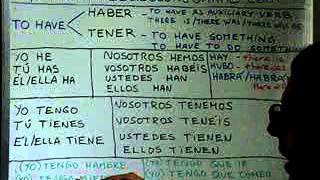 TO HAVE
HABER - TO HAVE AS AUXILIARY VERB
THERE IS/THERE WAS/
TENER - TO HAVE SOMETHING
TO HAVE TO DO SOMETHING
YO HE
TÚ HAS
ÉL/ELLA HA
NOSOTROS HEMOS
VOSOTROS HABÉIS
USTEDES HAN
ELLOS HAN
HAY - there is
HUBO - there
HABRÁ/HABRÍA
YO TENGO
TÚ TIENES
ÉL/ELLA TIENE
NOSOTROS TENEMOS
VOSOTROS TENÉIS
USTEDES TIENEN
ELLOS TIENEN
(YO) TENGO HAMBRE
(YO) TENGO
(YO) TENGO QUE IR
(YO) TENGO QUE COMER